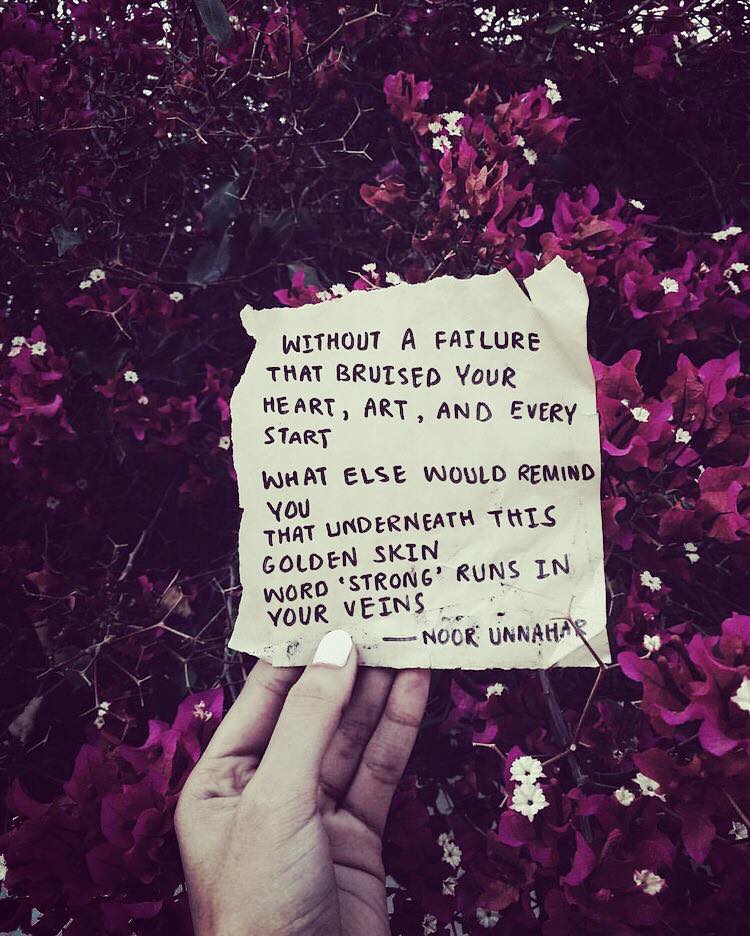 WITHOUT A FAILURE
THAT BRUISED YOUR
HEART, ART, AND EVERY
START
WHAT ELSE WOULD REMIND
YOU
THAT UNDERNEATH THIS
GOLDEN SKIN
WORD 'STRONG' RUNS IN
YOUR VEINS
— NOOR UNNAHAR